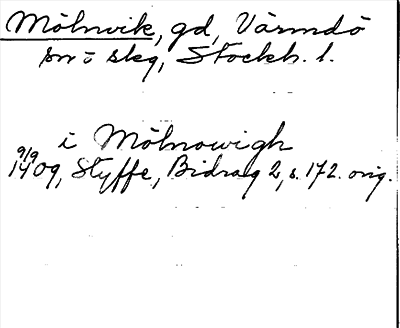 Mölnvik, gd, Värmdö
sn o skg, Stockh. l.
i Mölnowigh
9/9
1409, Styffe, Bidrag 2, s. 172. orig.